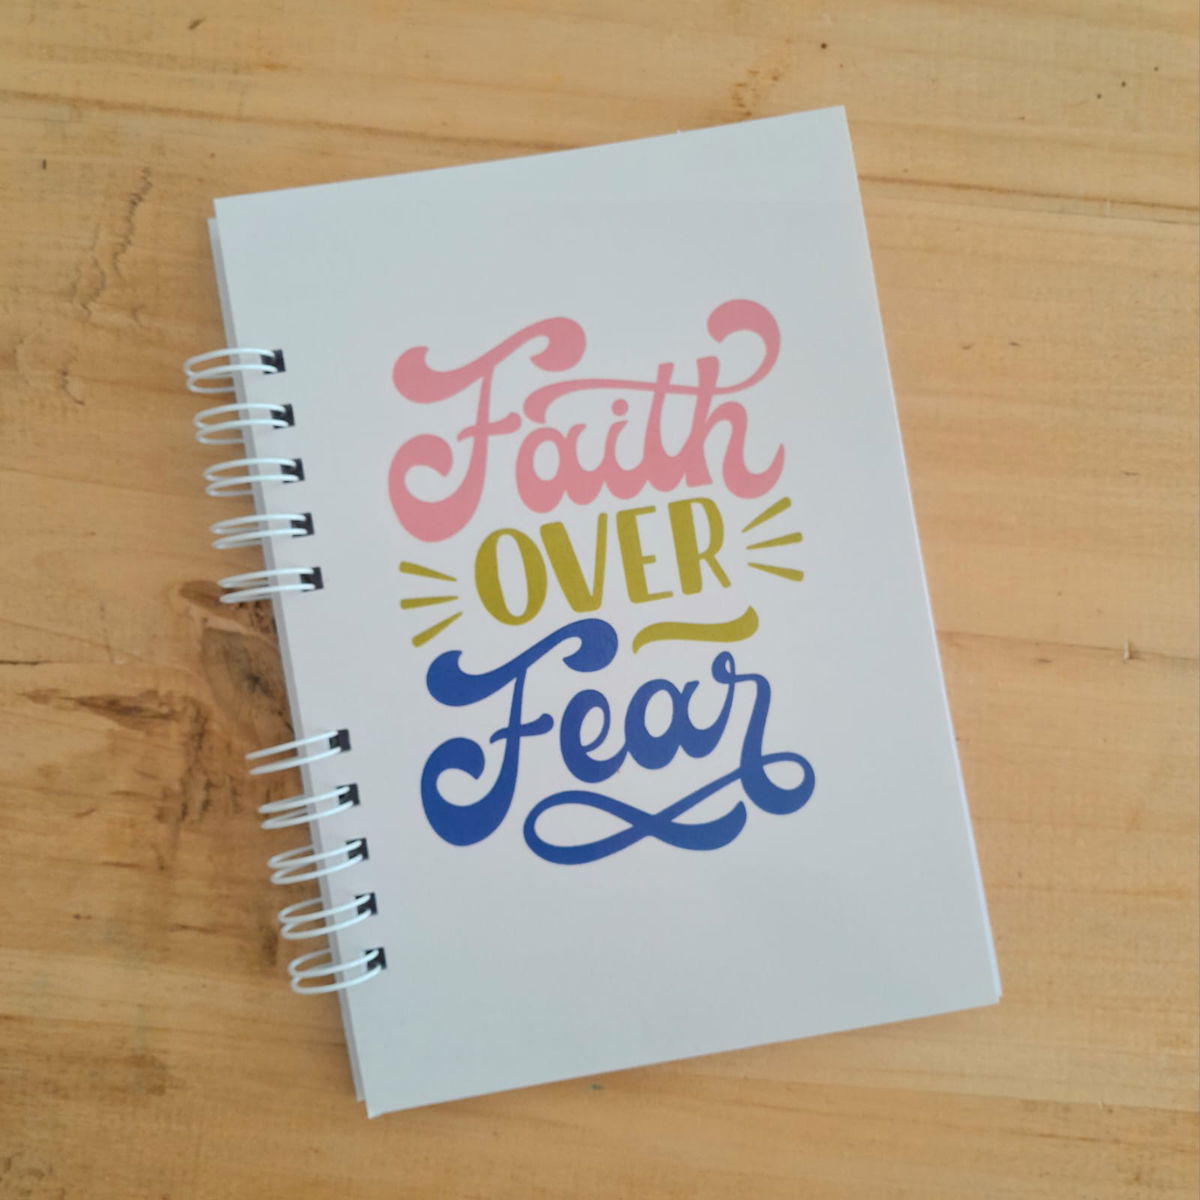 Faith
OVER
Fear